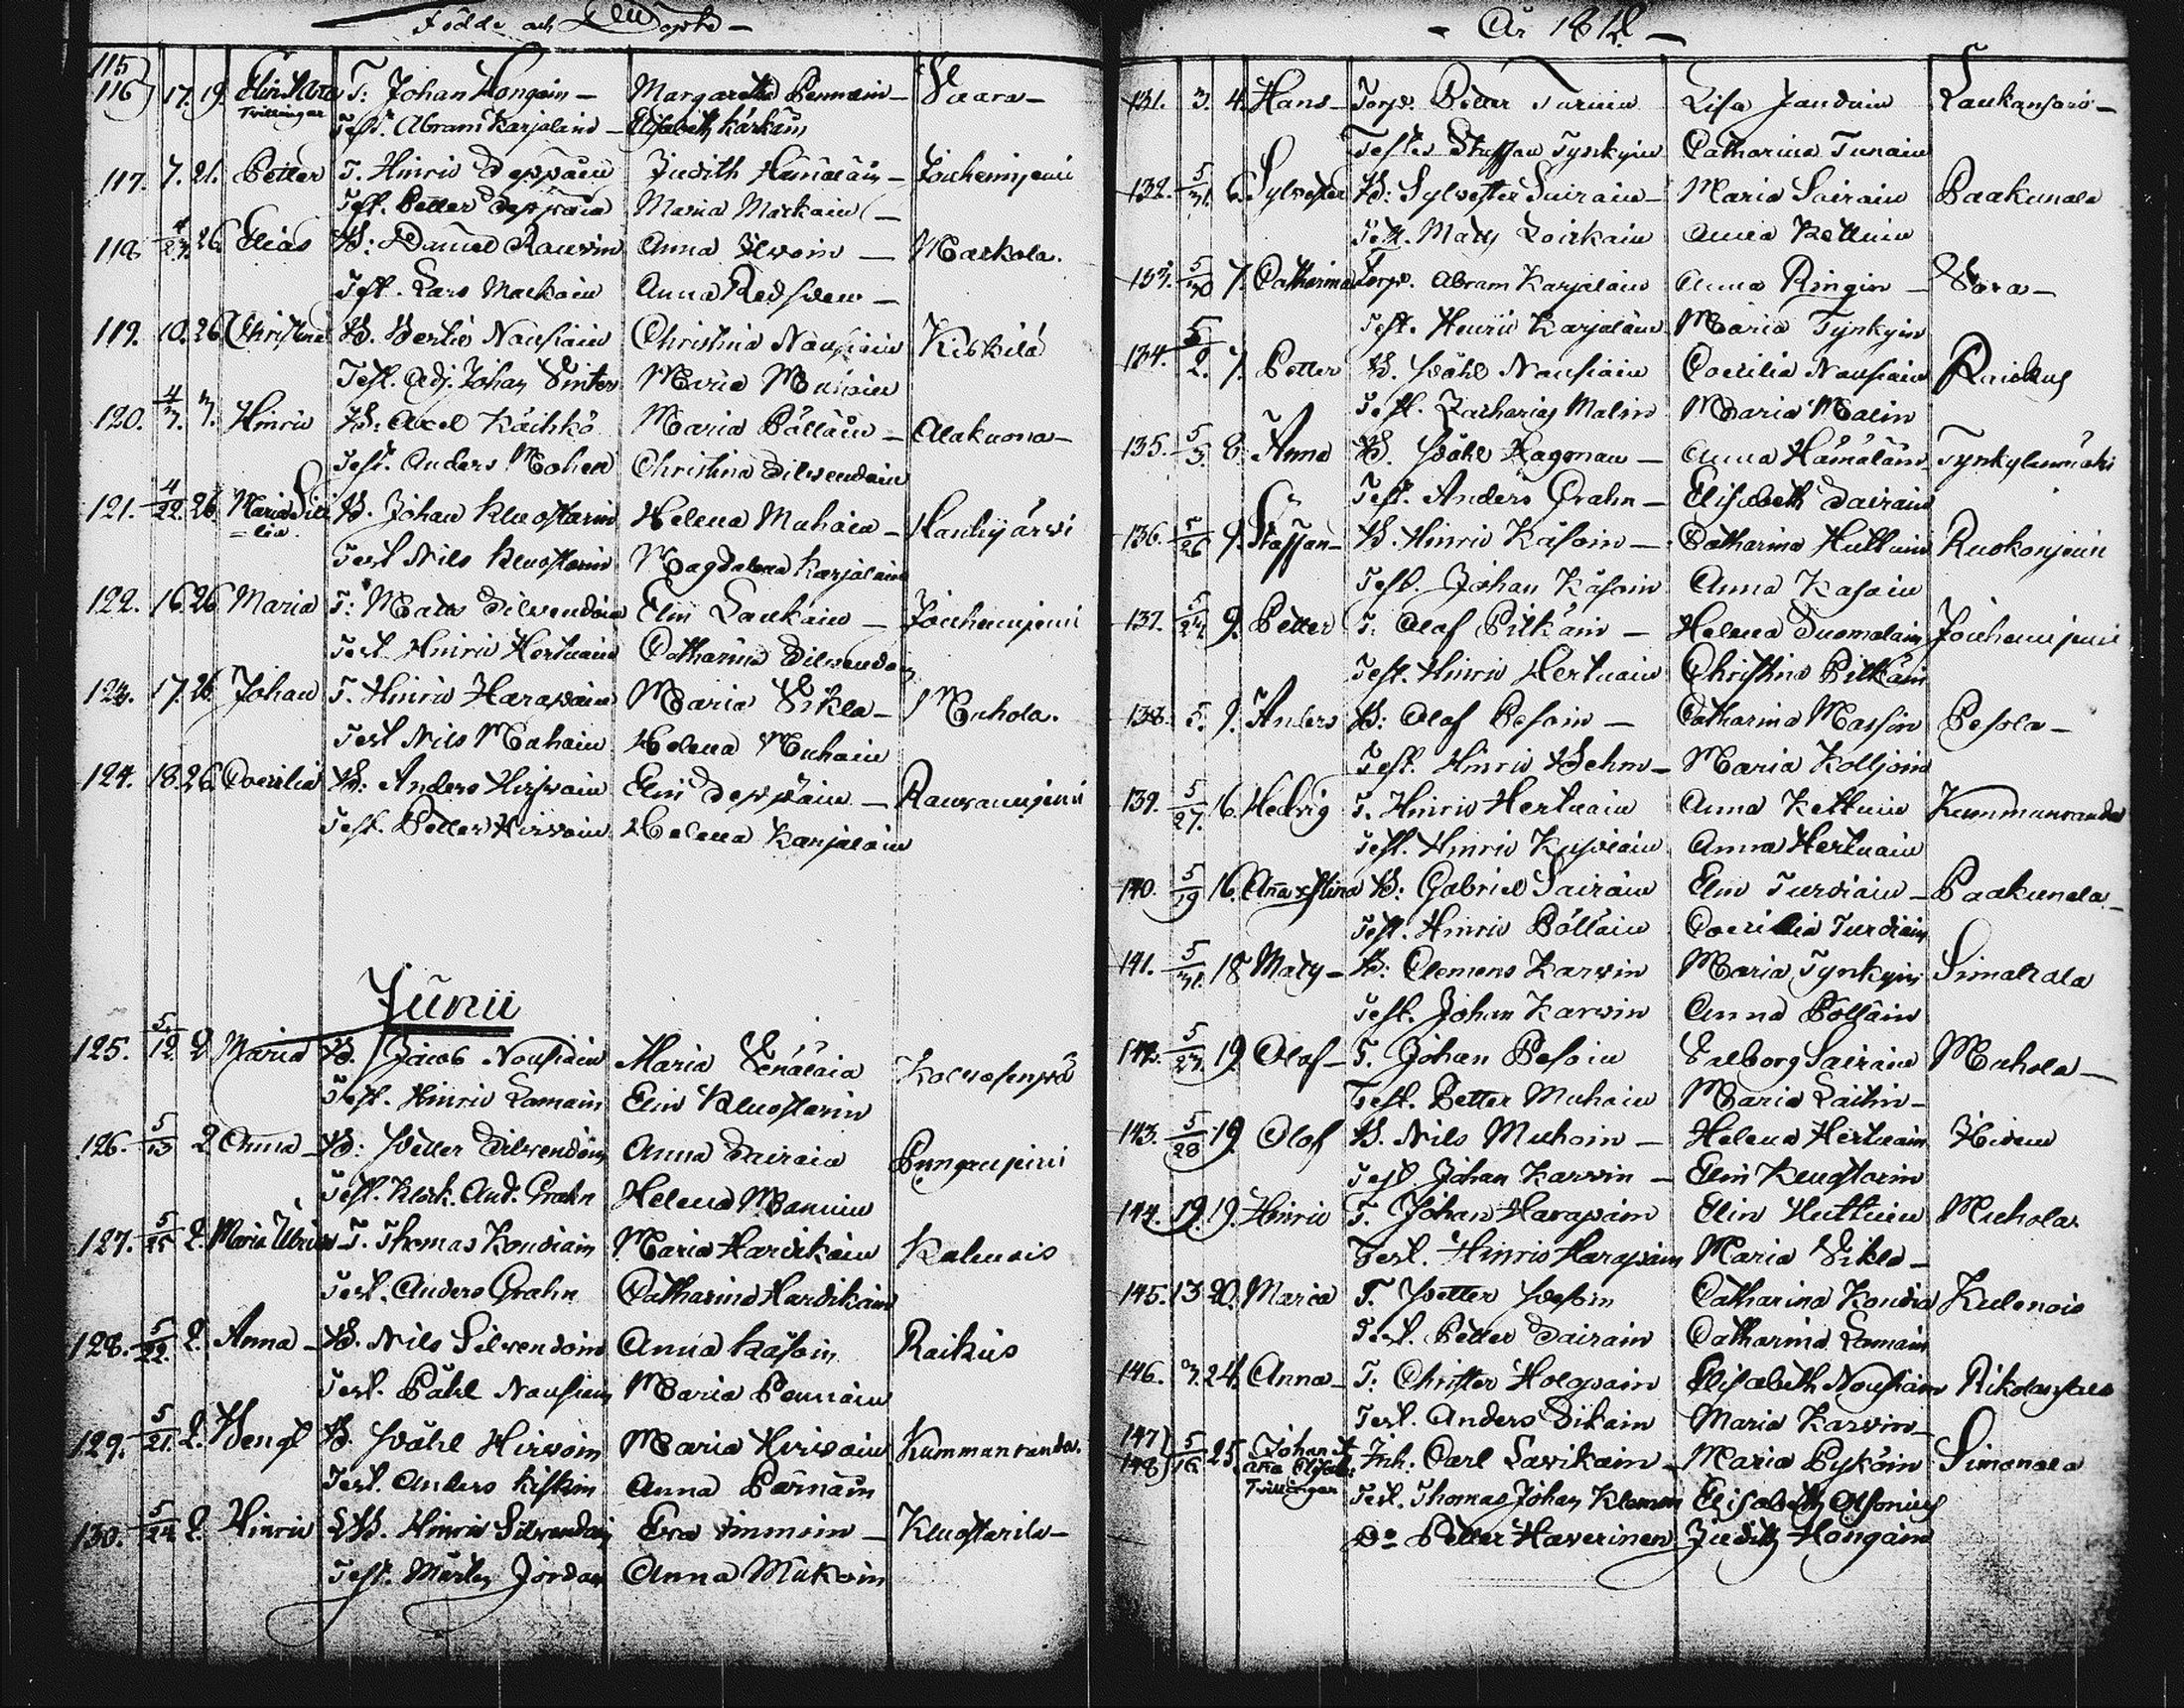 Födde och Döpte –
115
116 17. 19. Elin Maria T: Johan Hongain – Margaretha Pennain – Vaara –
Tvillingar Test. Abram Karjalain – Elisabeth Kärkäin
117. 7. 21. Petter T. Hinric Seppäin Judith Hämäläin – Jouhenijemi
Test. Petter Seppäin Maria Markain –
118 4/23. 26 Elias B: Daniel Rauvin Anna Ilvoin – Markola.
Test. Lars Markain Anna Redsven –
119. 10. 26. Christina B. Bertil Nousiain Christina Nousiain Kiskilä
Test. Adj. Johan Winter Maria Muhain
120. 4/3. 3. Hinric B: Axel Käihkö Maria Pölläin – Alakuona –
Test. Anders Mohell Christina Silvendoin
121. 4/22. 26. Maria Sici B. Johan Kluostarin Helena Muhoin – Hauhijärvi
= lia. Test Nils Kluostarin Magdalena Karjalain
122. 16. 26 Maria T: Matts Silvendoin Elin Laukain – Jouhenijemi
Test Hinric Hertuain Catharina Silvendoin
123. 17. 26. Johan T. Hinric Harapain Maria Vikla – Muhola.
Test Nils Muhain Helena Muhain
124. 18. 26. Coecilia B: Anders Hirvoin Elin Seppäin – Rauvaniemi
Test. Petter Hirvoin Helena Karjalain
Junii
125. 5/12. 2 Maria B. Jacob Nousiain Maria Venäläin
Test. Hinric Lamain Elin Kluostarin
126. 5/13 2 Anna – B: Petter Silvendoin Anna Sairain Pungunjemi
Test. Klock. And. Grahn Helena Mannin
127. 5/25 2. Maria Ulrica – T. Thomas Kondiain Maria Hardikain Kulenois
Test. Anders Grahn Catharina Hardikain
128. 5/22. 2. Anna – B. Nils Silvendoin Anna Kasoin Raikus
Test. Påhl Nousiain Maria Pennain
129. 5/21. 2. Bengt B. Påhl Hirvoin Maria Hirvoin Kummunranda.
Test. Anders Kiskin Anna Pärnäin
130. 5/24 2. Hinric B. Hinric Silvendoin Eva Immoin – Kluostarila –
Test. Mårten Jordan Anna Mukoin
– År 1812 –
131. 3. 4. Hans – Torp. Petter Turuin Lisa Janduin Laukansari –
Testes Staffan Tynkyin Catharina Tunain
132. 5/31. 6. Sylvester B: Sylvester Sairain – Maria Sairain Paakunala
Test. Mats Loickain Anna Kettuin
133. 5/30 7. Catharina Torp. Abram Karjalain Anna Ringin – Vara –
Test. Henric Karjalain Maria Tynkyin
134. 5/2. 7. Petter B. Påhl Nousiain Coecilia Nousiain Raickus
Test. Zacharias Malin Maria Malin
135. 5/3. 8. Anna B. Påhl Hagman – Anna Hämäläin Tynkylenmäki
Test. Anders Grahn – Elisabeth Sairain
136. 5/26 9. Staffan – B. Hinric Kasoin – Catharina Huttuin Ruokonjemi
Test. Johan Käsoin Anna Kasoin
137. 5/24. 9. Petter T. Olof Pitkäin – Helena Suomalain Jouhenijemi
Test. Hinric Hertuain Christina Pitkäin
138. 5. 9. Anders B: Olof Pesoin – Catharina Massin Pesola –
Test. Hinric Behm – Maria Kolljoin
139. 5/27. 16. Hedvig T. Hinric Hertuain Anna Kettuin Kummunranda
Test. Hinric Kupiain Anna Hertuain
140. 5/19 16. Anna Stina B: Gabriel Sairain Elin Turdiain – Paakunala –
Test. Hinric Pölläin Coecilia Turdiain
141. 5/31. 18 Mats – B: Clemens Karvin Maria Tynkyin Simalzala
Test. Johan Karvin Anna Pölläin
142. 5/27. 19. Olof – T. Johan Pesoin Valborg Sairain Muhola –
Test. Petter Muhoin Maria Laitin –
143. 5/28 19. Olof B. Nils Muhoin – Helena Hertuain Hiden
Test. Johan Karvin – Elin Kluostarin
144. 19. 19. Hinric T. Johan Harapain Elin Huttuin Muhola
Test. Hinric Harapain Maria Vikla –
145. 13 20. Maria T. Petter Pesoin Catharina Kondia Kulenois
Test. Petter Sairain Catharina Lamain
146. 3. 24. Anna – T: Christer Holopain Elisabeth Nousiain
Test. Anders Sikain Maria Karvin –
147
148 5/16 25. Johan & Inh: Carl Lavikain – Maria Pyköin Simonala
Anna Elisab: Test. Thomas Johan Klemon Elisabeth Alfonius
Tvillingar Do Petter Haverinen Judith Hongain